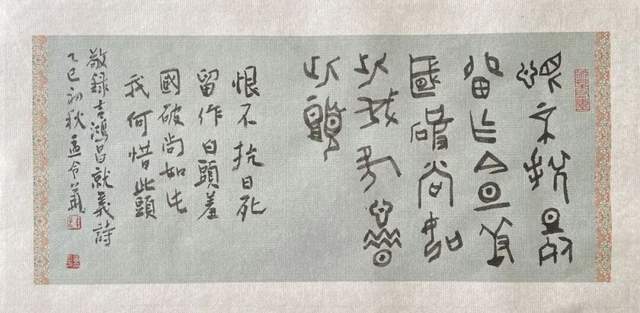 恨不抗日死
留作今日羞
國破尚如
此我何惜
此頭
恨不抗日死
留作白頭羞
國破尚如此
我何惜此頭
敬錄吉鴻昌就義詩
乙巳初秋孟令